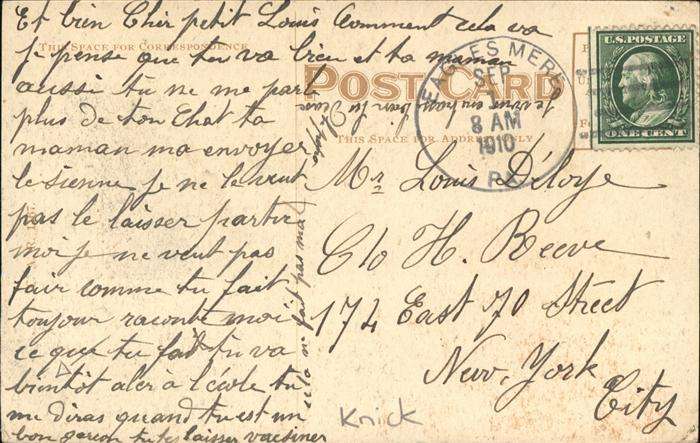 Et bien Cher petit Louis Comment cela va
THIS SPACE FOR CORRESPONDENCE
je pense que tu va bien et ta maman
aussi tu ne me parl
plus de ton Chat ta
maman ma envoyer
le sienne je ne le veut
pas le laisser partir
moi je ne veut pas
fair comme tu fait
toujour raconte moi
ce que tu fait tu va
bientôt aler à l'école tu
me diras quand tu est un
bon garçon tu tes laisser vacsiner
cela ne fait pas mal
POST CARD
THIS SPACE FOR ADDRESS ONLY
EAGLES MERE
SEP
8 AM
1910
PA.
U.S. POSTAGE
ONE CENT
Mr Louis Déloye
C/o H. Reeve
174 East 70 Street
New York
City
Knick